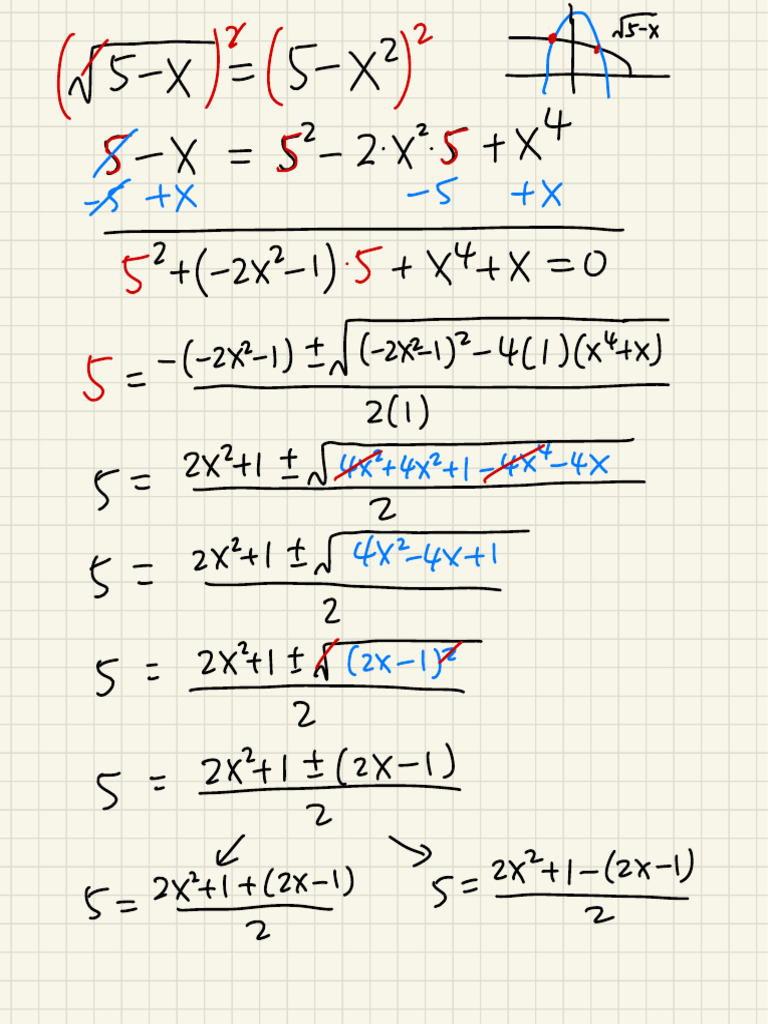 (√(5-x))² = (5-x²)²
√5-x
5 - x = 5² - 2·x²·5 + x⁴
-5 +x -5 +x
5² + (-2x²-1)·5 + x⁴ + x = 0
5 = (-(-2x²-1) ± √((-2x²-1)² - 4(1)(x⁴+x))) / 2(1)
5 = (2x²+1 ± √(4x²+4x²+1-4x⁴-4x)) / 2
5 = (2x²+1 ± √(4x²-4x+1)) / 2
5 = (2x²+1 ± √((2x-1)²)) / 2
5 = (2x²+1 ± (2x-1)) / 2
5 = (2x²+1+(2x-1)) / 2 5 = (2x²+1-(2x-1)) / 2